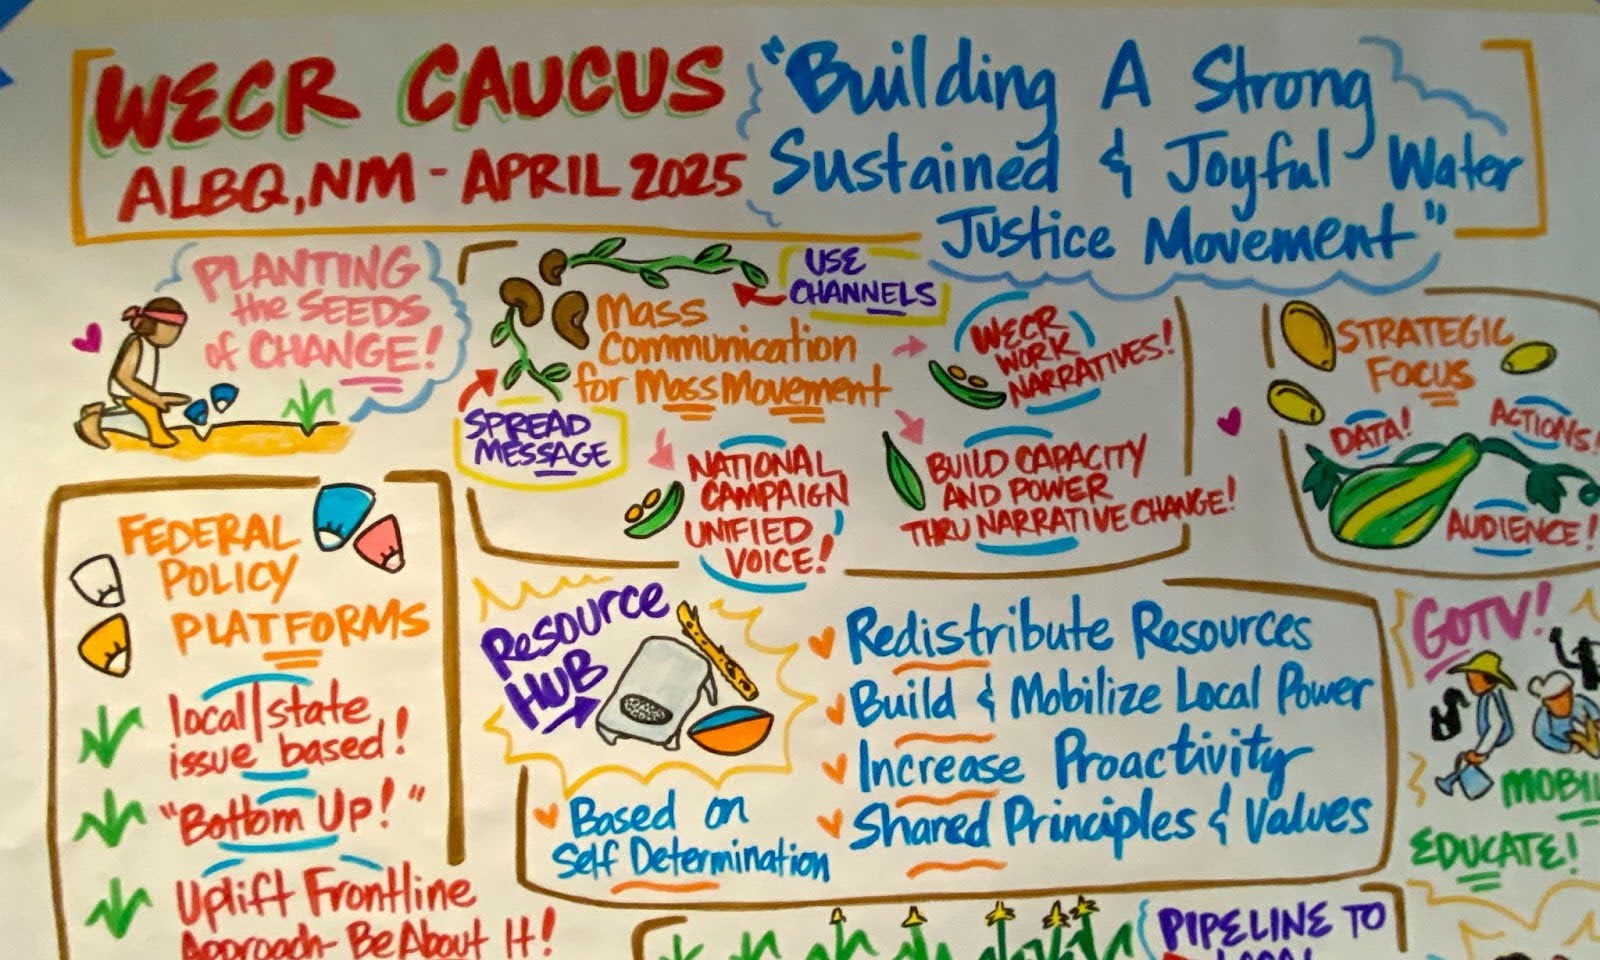 WECR CAUCUS
ALBQ, NM - APRIL 2025
"Building A Strong
Sustained & Joyful Water
Justice Movement"
PLANTING
the SEEDS
of CHANGE!
USE
CHANNELS
Mass
Communication
for Mass Movement
SPREAD
MESSAGE
WECR
WORK
NARRATIVES!
NATIONAL
CAMPAIGN
UNIFIED
VOICE!
BUILD CAPACITY
AND POWER
THRU NARRATIVE CHANGE!
STRATEGIC
FOCUS
DATA!
ACTIONS!
AUDIENCE!
FEDERAL
POLICY
PLATFORMS
local/state
issue based!
"Bottom Up!"
Uplift Frontline
Approach- Be About It!
Resource
HUB
Based on
Self Determination
Redistribute Resources
Build & Mobilize Local Power
Increase Proactivity
Shared Principles & Values
GOTV!
MOBIL
EDUCATE!
PIPELINE TO
LOCAL